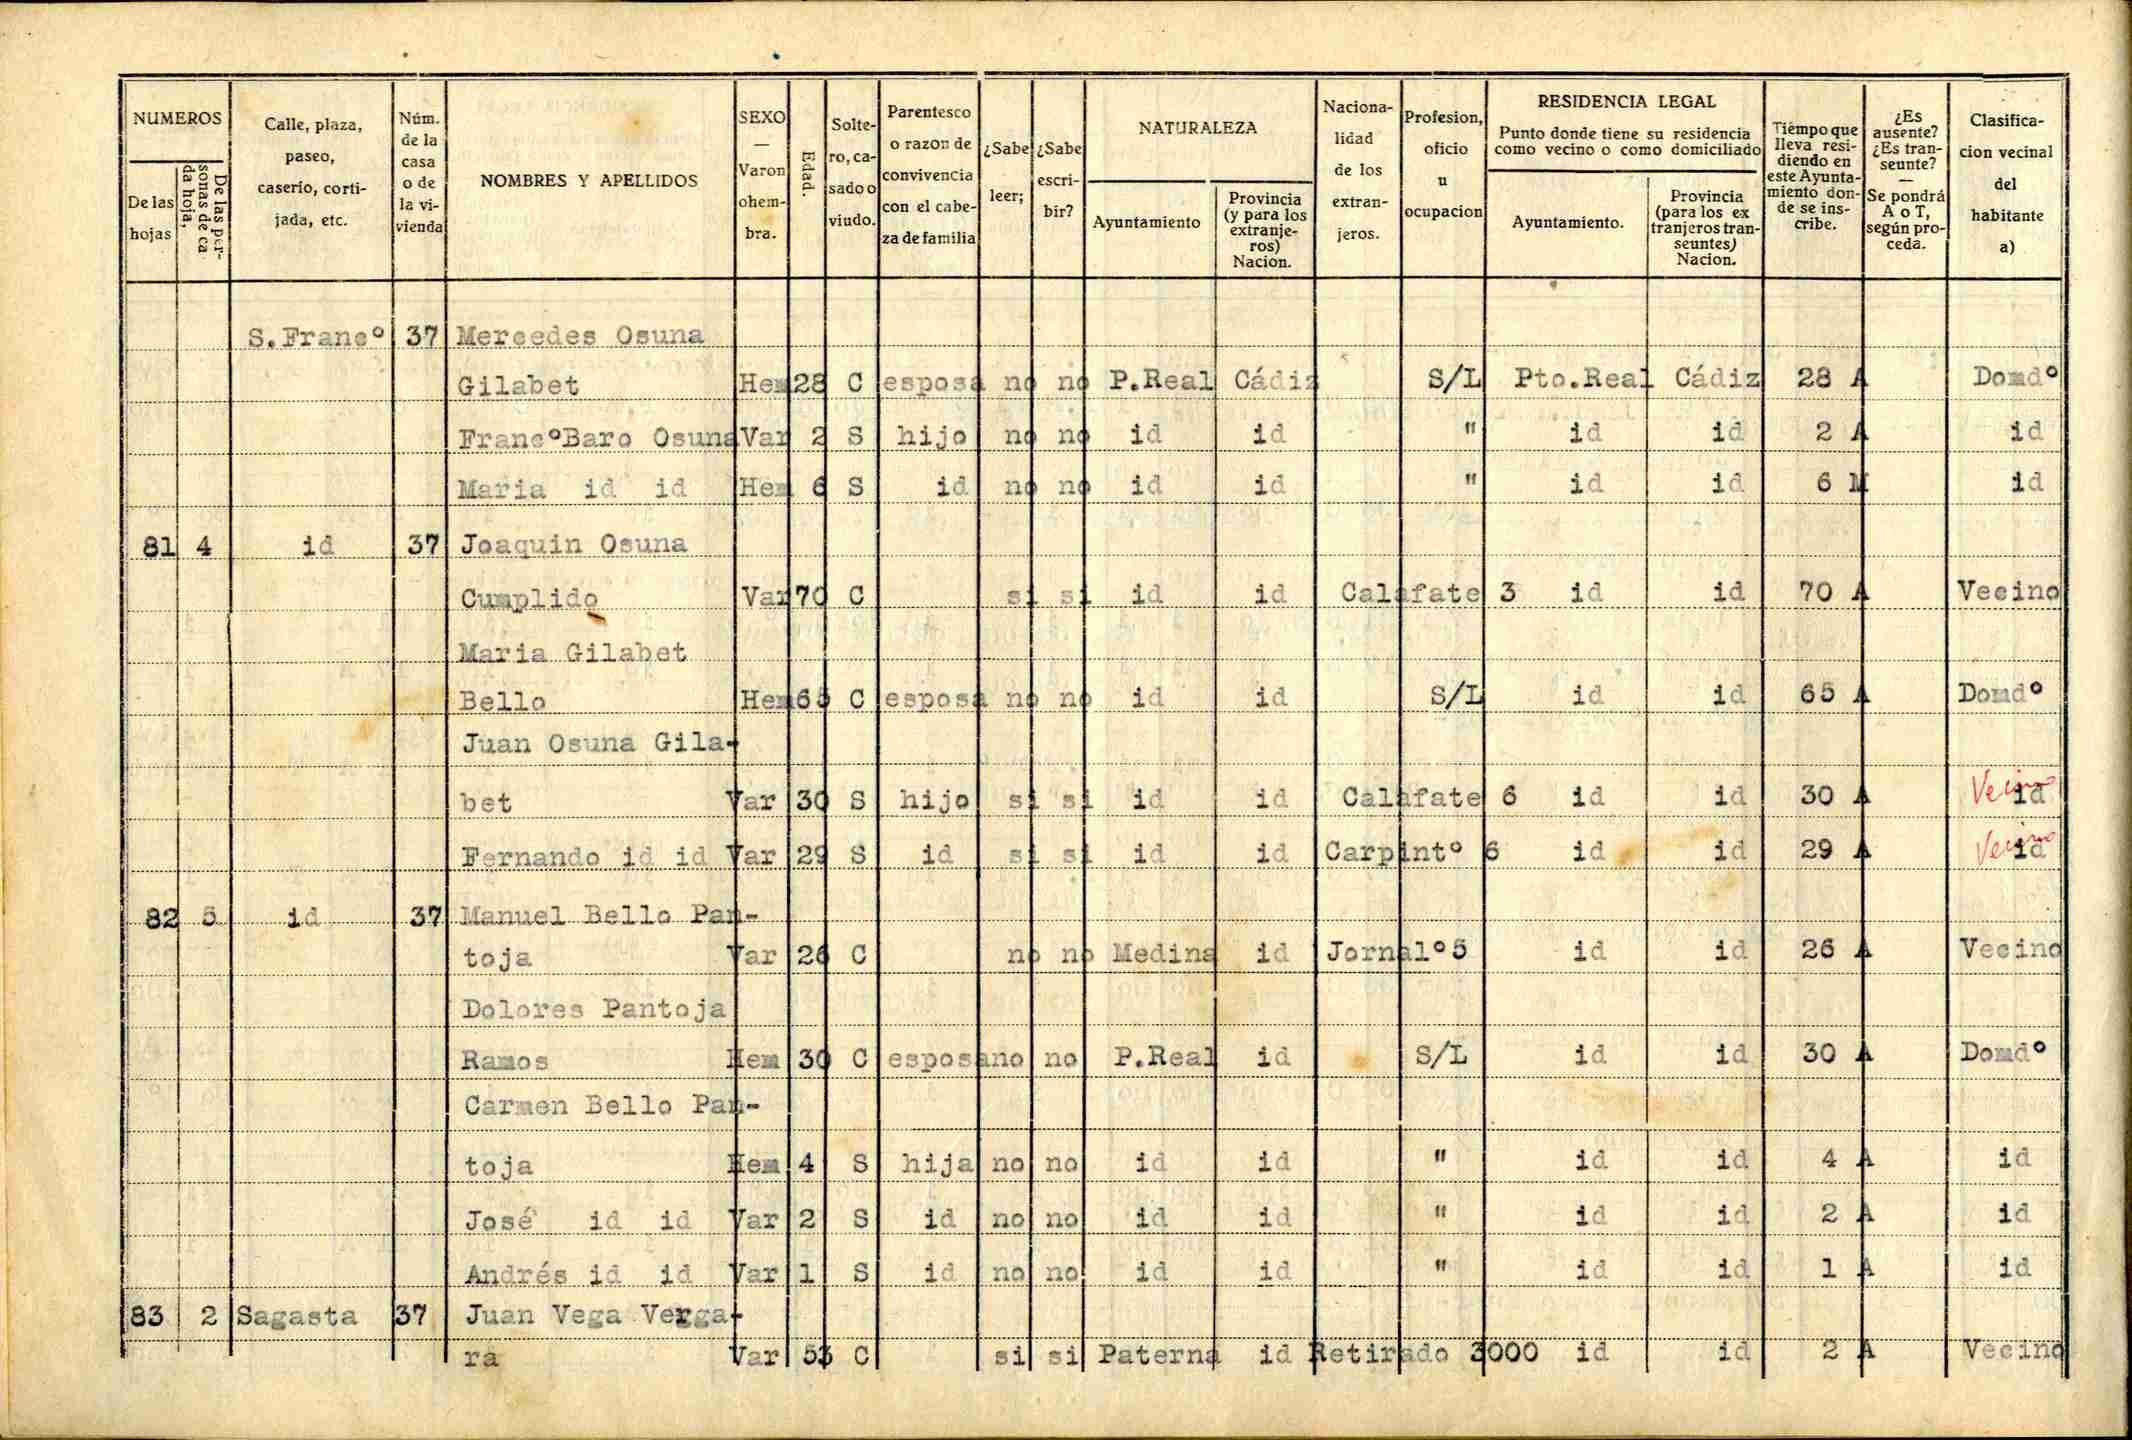 NUMEROS
De las hojas
De las personas de cada hoja,
Calle, plaza, paseo, caserio, cortijada, etc.
Núm. de la casa o de la vivienda
NOMBRES Y APELLIDOS
SEXO — Varon o hembra.
Edad.
Soltero, casado o viudo.
Parentesco o razon de convivencia con el cabeza de familia
¿Sabe leer;
¿Sabe escribir?
NATURALEZA
Ayuntamiento
Provincia (y para los extranjeros) Nacion.
Nacionalidad de los extranjeros.
Profesion, oficio u ocupacion
RESIDENCIA LEGAL
Punto donde tiene su residencia como vecino o como domiciliado
Ayuntamiento.
Provincia (para los extranjeros transeuntes) Nacion.
Tiempo que lleva residiendo en este Ayuntamiento donde se inscribe.
¿Es ausente? ¿Es transeunte? — Se pondrá A o T, según proceda.
Clasificacion vecinal del habitante a)
S.Francº 37 Mercedes Osuna
Gilabet Hem 28 C esposa no no P.Real Cádiz S/L Pto.Real Cádiz 28 A Domdº
FrancºBaro Osuna Var 2 S hijo no no id id " id id 2 A id
Maria id id Hem 6 S id no no id id " id id 6 M id
81 4 id 37 Joaquin Osuna
Cumplido Var 70 C si si id id Calafate 3 id id 70 A Vecino
Maria Gilabet
Bello Hem 65 C esposa no no id id S/L id id 65 A Domdº
Juan Osuna Gila-
bet Var 30 S hijo si si id id Calafate 6 id id 30 A id Vecino
Fernando id id Var 29 S id si si id id Carpintº 6 id id 29 A id Vecino
82 5 id 37 Manuel Bello Pan-
toja Var 26 C no no Medina id Jornalº5 id id 26 A Vecino
Dolores Pantoja
Ramos Hem 30 C esposa no no P.Real id S/L id id 30 A Domdº
Carmen Bello Pan-
toja Hem 4 S hija no no id id " id id 4 A id
José id id Var 2 S id no no id id " id id 2 A id
Andrés id id Var 1 S id no no id id " id id 1 A id
83 2 Sagasta 37 Juan Vega Verga-
ra Var 53 C si si Paterna id Retirado 3000 id id 2 A Vecino